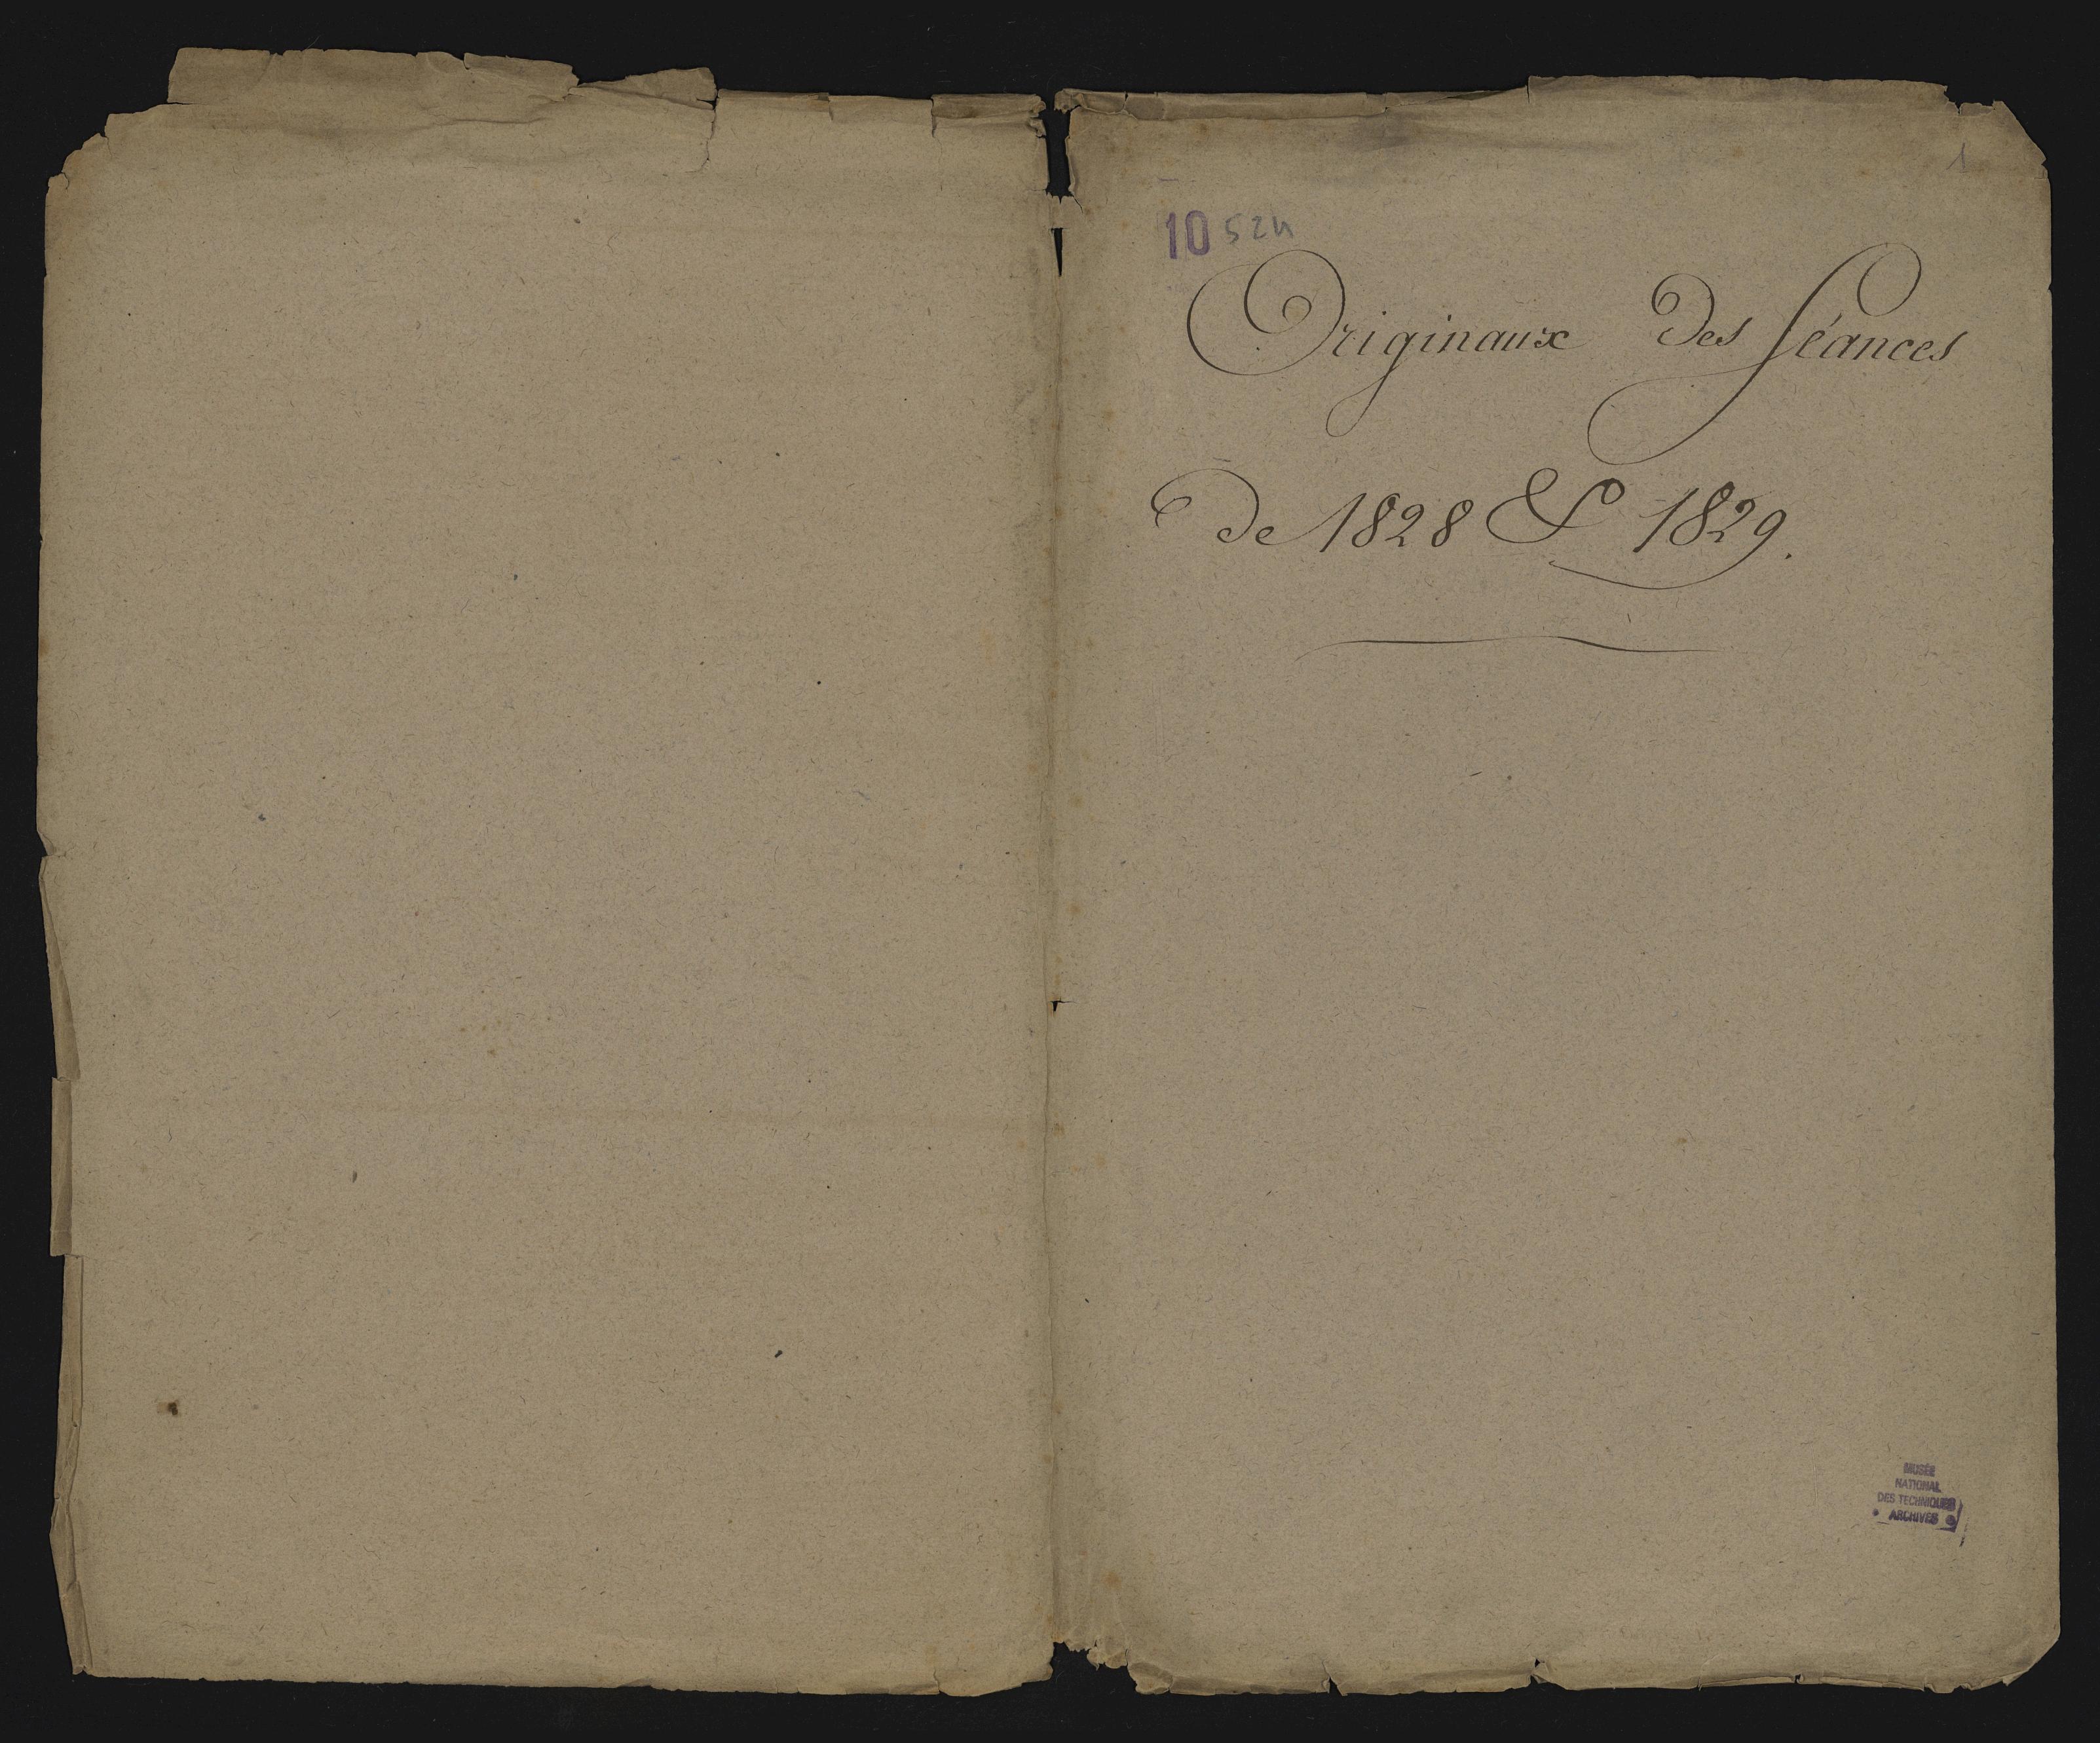 1
10 524
Originaux Des Séances
De 1828 & 1829.
MUSÉE
NATIONAL
DES TECHNIQUES
ARCHIVES